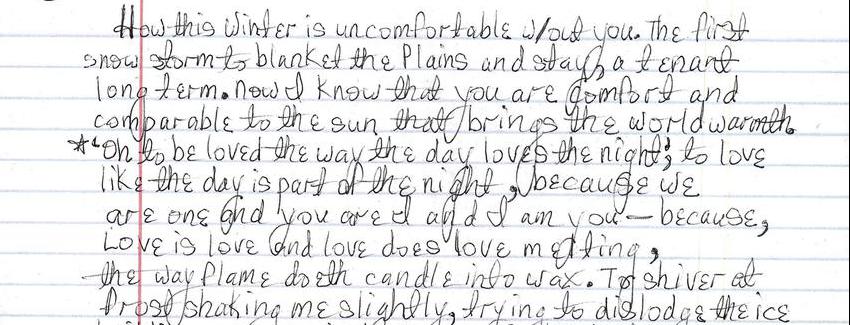 How this Winter is uncomfortable w/out you. The first
snow storm to blanket the Plains and stay, a tenant
long term. now I know that you are comfort and
comparable to the sun that brings the world warmth.
*"Oh to be loved the way the day loves the night", to love
like the day is part of the night, because we
are one and you are I and I am you — because,
Love is love and love does love melting,
the way flame doeth candle into wax. To shiver at
frost shaking me slightly, trying to dislodge the ice